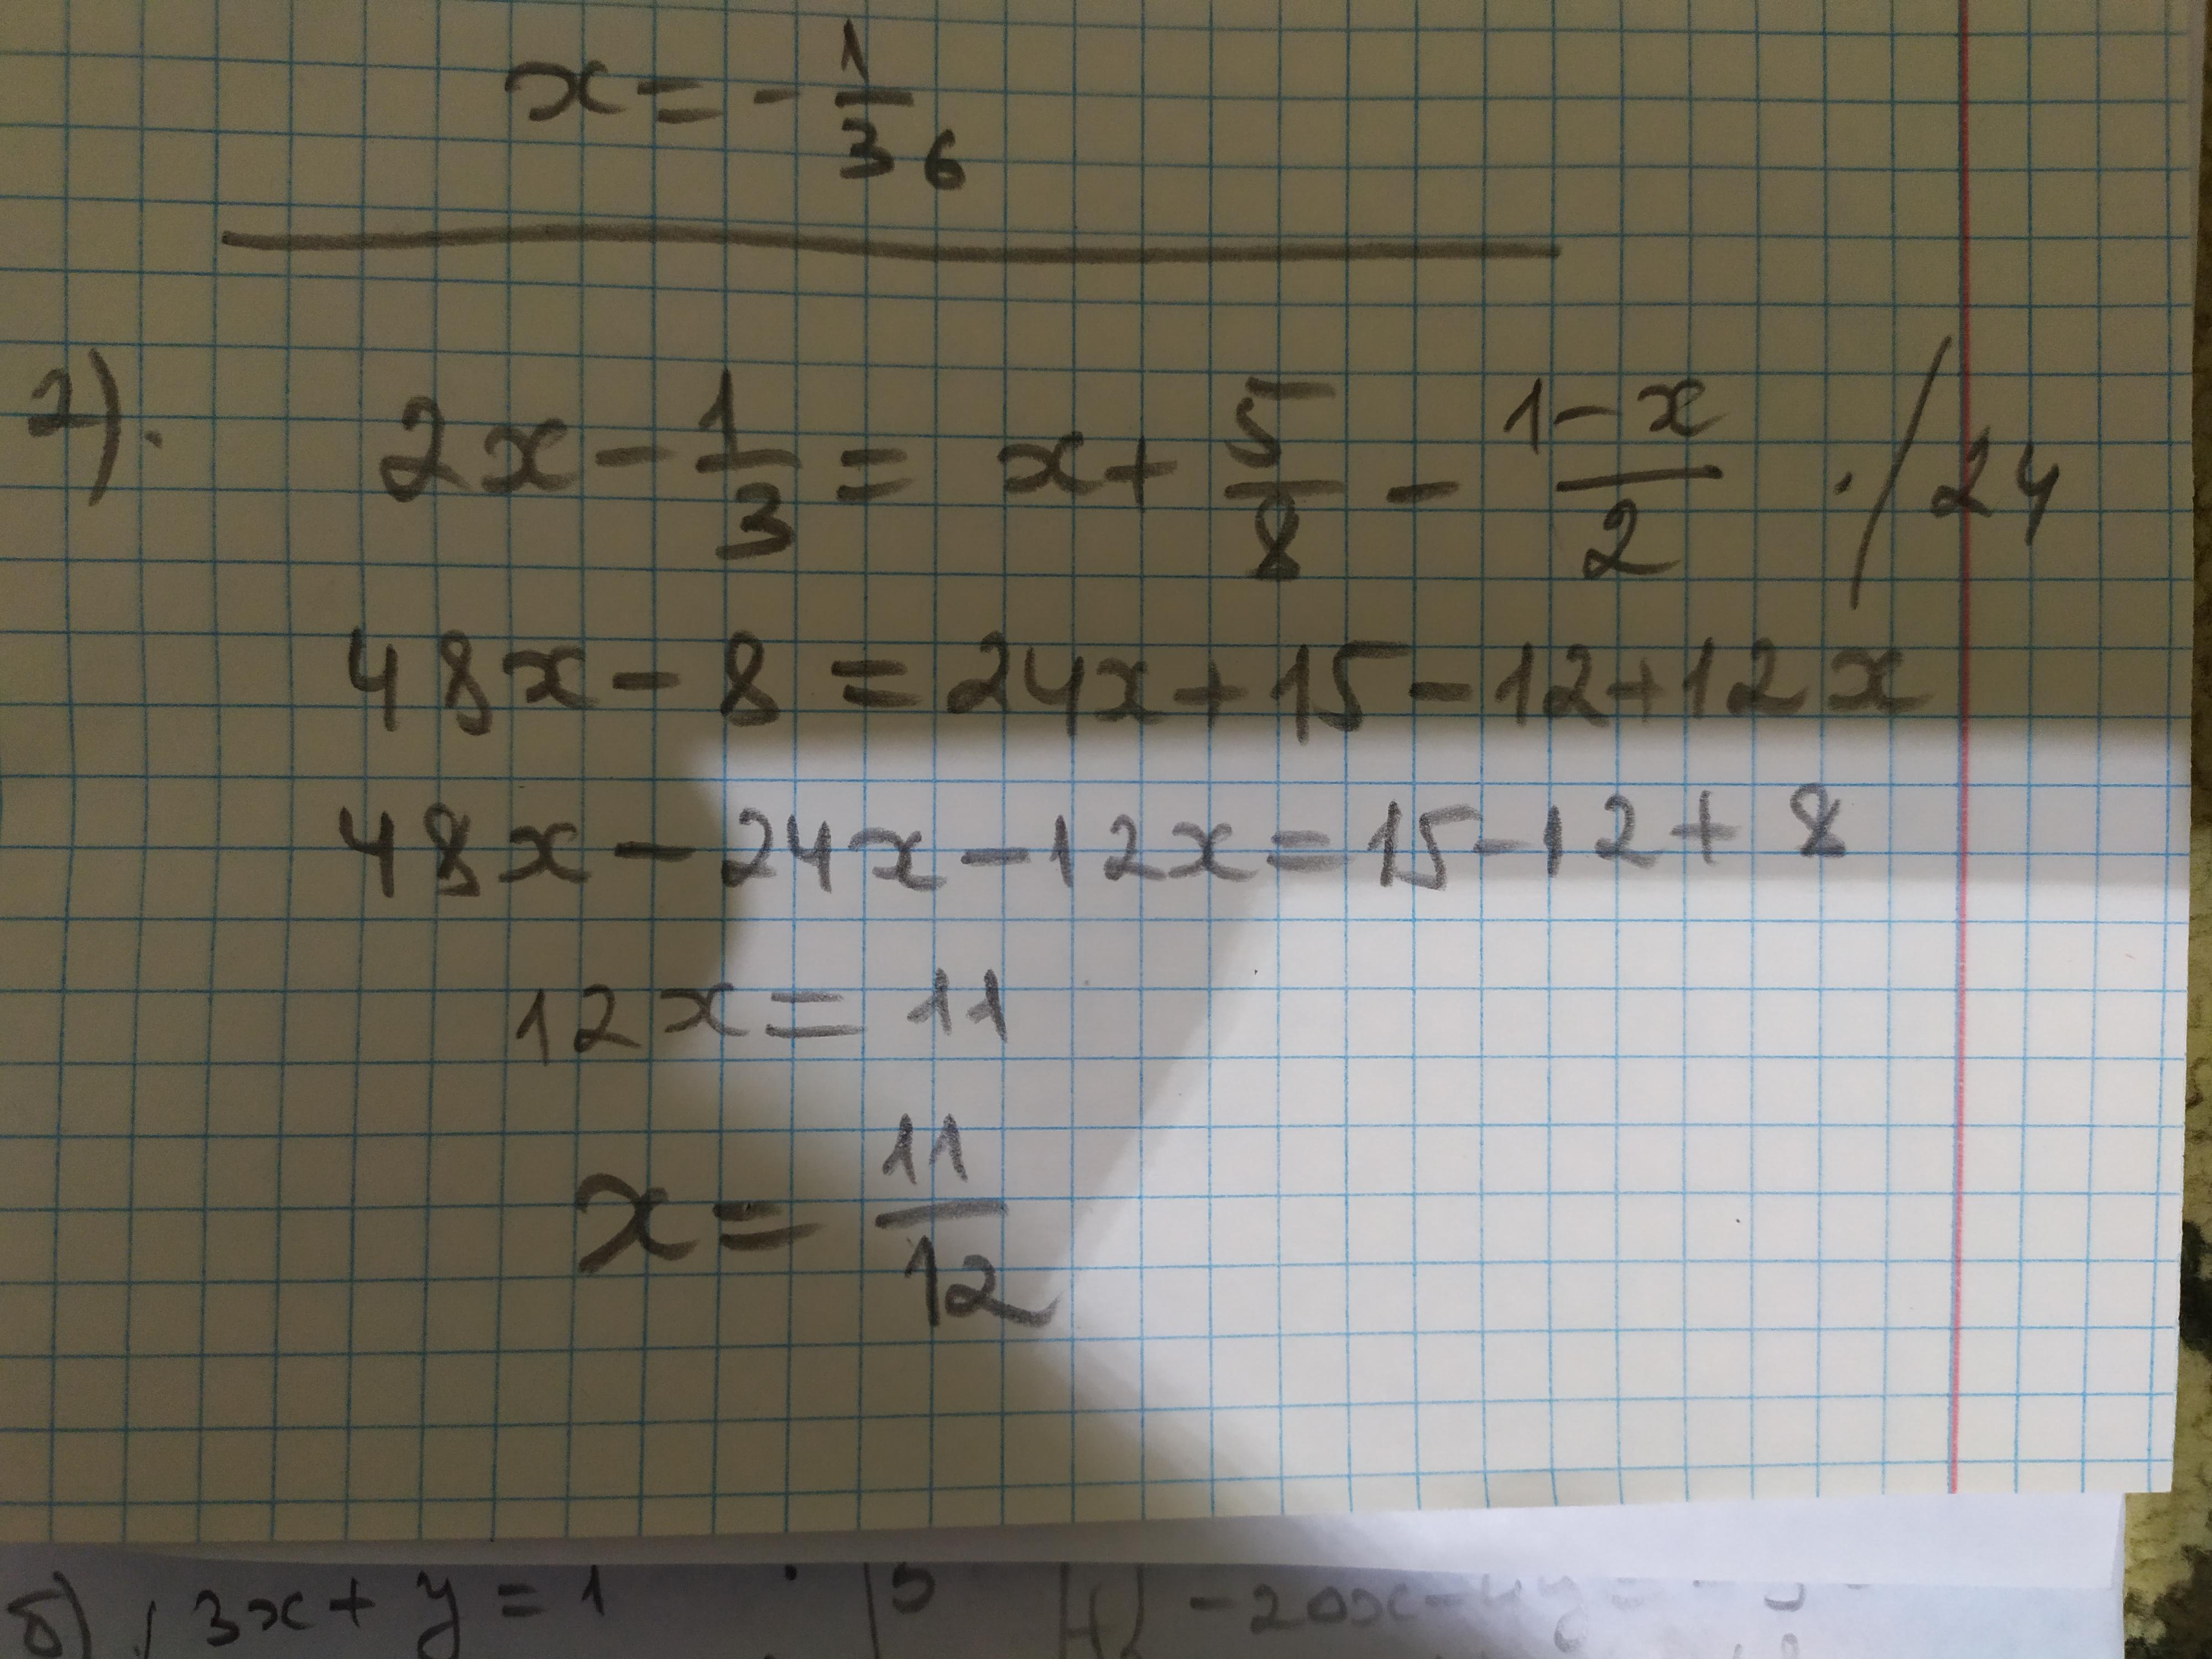 x = - 1/36
2). 2x - 1/3 = x + 5/8 - (1-x)/2 ·/24
48x - 8 = 24x + 15 - 12 + 12x
48x - 24x - 12x = 15 - 12 + 8
12x = 11
x = 11/12
б) 3x + y = 1